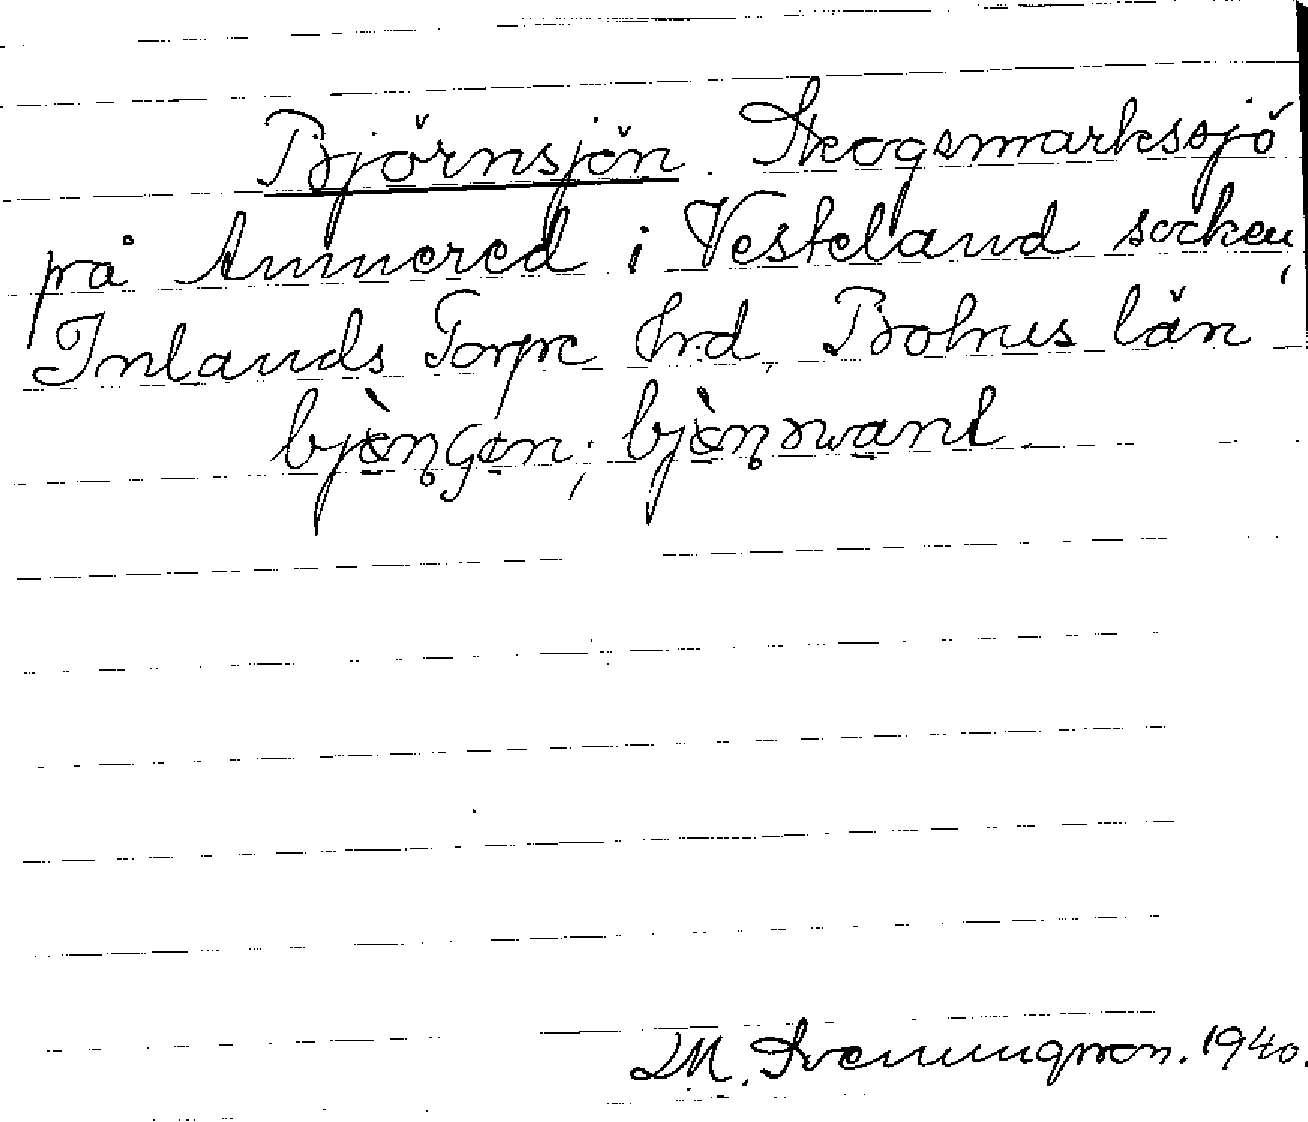 Björnsjön. Skogsmarkssjö
på Annered i Vesteland socken,
Inlands Torpe hrd, Bohus län
M. Svenungsson. 1940.